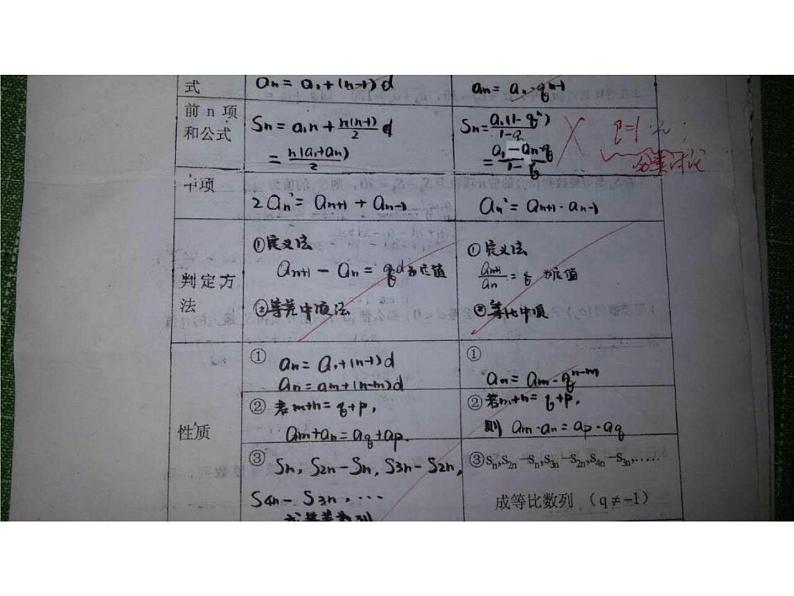 式
an = a1 + (n-1)d
an = a1·q^n-1
前 n 项
和公式
Sn = a1n + n(n-1)/2 d
= n(a1+an)/2
Sn = a1(1-q^n)/1-q
= a1-an·q/1-q
q=1
分类讨论
中项
2an = an+1 + an-1
an² = an+1·an-1
判定方
法
①定义法
an+1 - an = d为定值
②等差中项法
①定义法
an+1/an = q 为定值
②等比中项
性质
① an = a1+(n-1)d
an = am+(n-m)d
① an = am·q^n-m
② 若m+n=q+p,
am+an=aq+ap.
② 若m+n=q+p,
则 am·an=ap·aq
③ Sn, S2n-Sn, S3n-S2n,
S4n-S3n, ...
成等差数列
③Sn,S2n-Sn,S3n-S2n,S4n-S3n,……
成等比数列 (q≠-1)